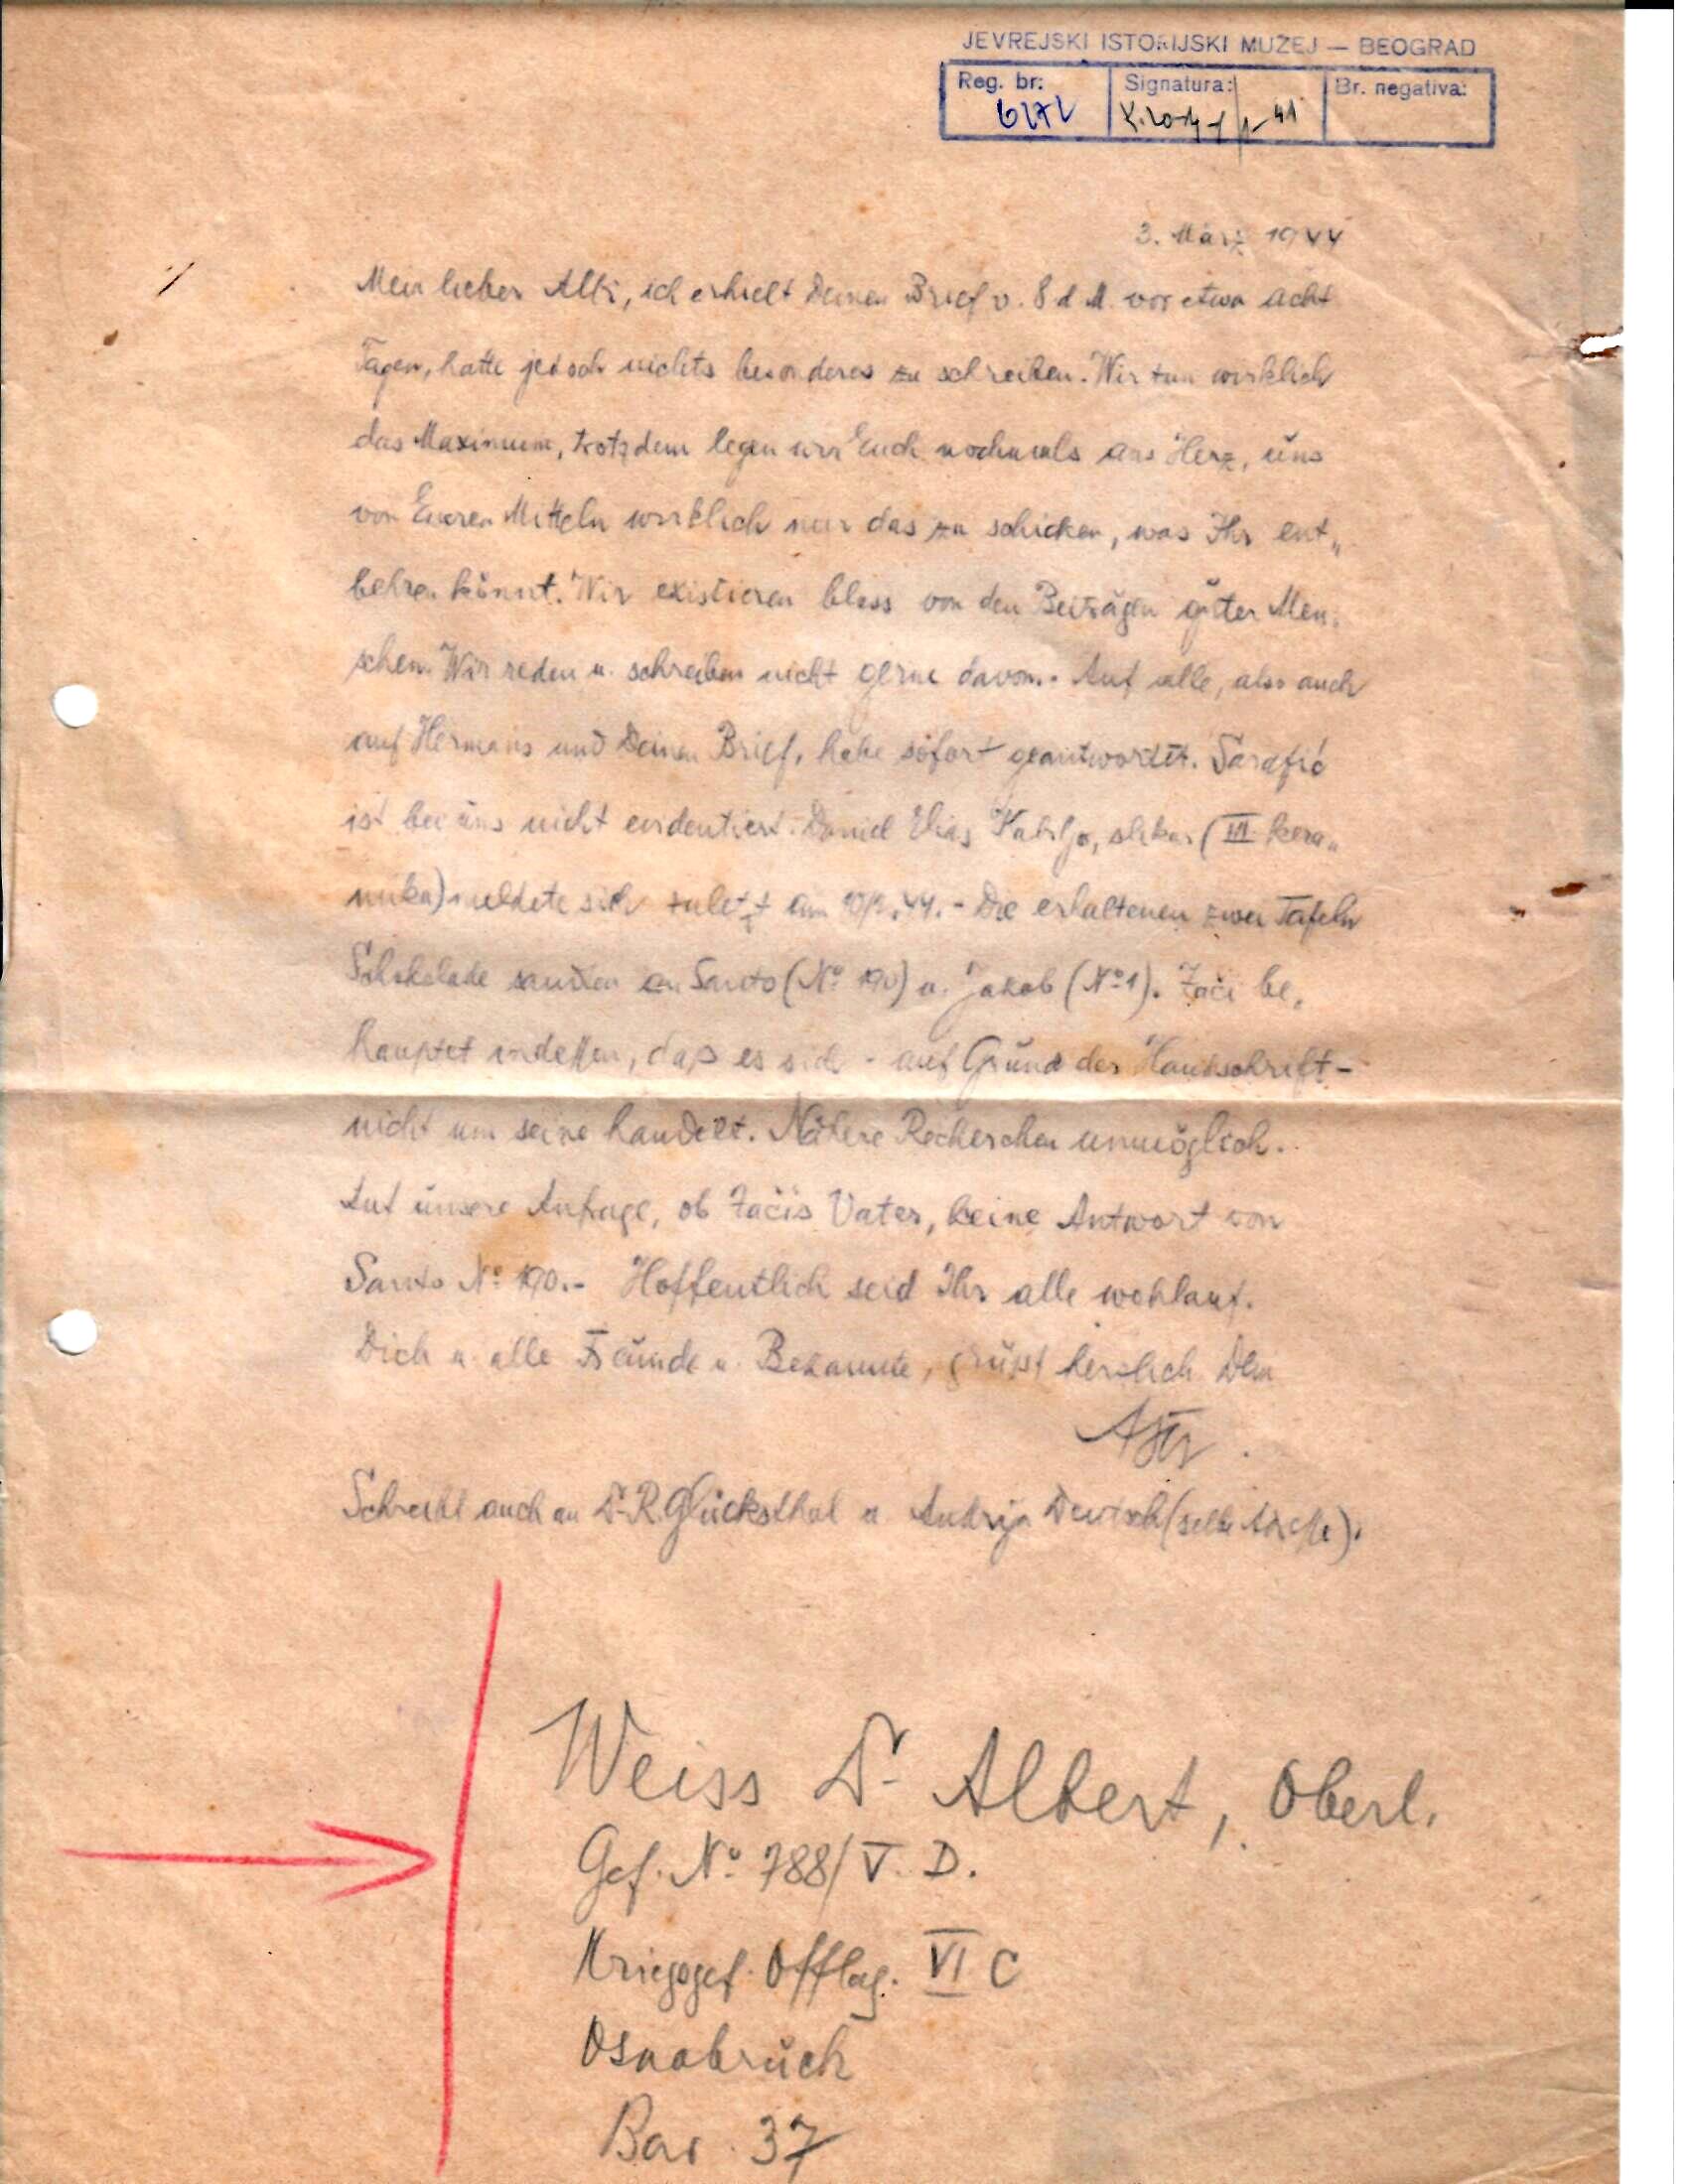 JEVREJSKI ISTORIJSKI MUZEJ — BEOGRAD
Reg. br: Signatura: Br. negativa:
3. März 1944
Mein lieber Albi, ich erhielt Deinen Brief v. 8 d. M. vor etwa acht
Tagen, hatte jedoch nichts besonderes zu schreiben. Wir tun wirklich
das Maximum, trotzdem legen wir Euch nochmals ans Herz, uns
von Eueren Mitteln wirklich nur das zu schicken, was Ihr ent„
behren könnt. Wir existieren bloss von den Beiträgen guter Men„
schen. Wir reden u. schreiben nicht gerne davon.- Auf alle, also auch
auf Hermans und Deinen Brief, habe sofort geantwortet. Sarafić
ist bei uns nicht evidentiert. Daniel Elias Kabiljo, slikar (III
) meldete sich zuletzt am .44.- Die erhaltenen zwei Tafeln
Schokolade sandten an Santo (No 190) u. Jakob (No 1). Žači be„
hauptet indessen, daß es sich - auf Grund der Handschrift -
nicht um seine handelt. Nähere Recherchen unmöglich.
Auf unsere Anfrage, ob Žačis Vater, keine Antwort von
Santo No 190.- Hoffentlich seid Ihr alle wohlauf.
Dich u. alle Freunde u. Bekannte, grüßt herzlich Dein
Schreibt auch an Dr R. Glücksthal u. Andrija Deutsch (selbe Adresse).
Weiss Dr Albert, Oberl.
Gef. No 788/V. D.
Kriegsgef. Offlag. VI C
Osnabrück
Bar. 37